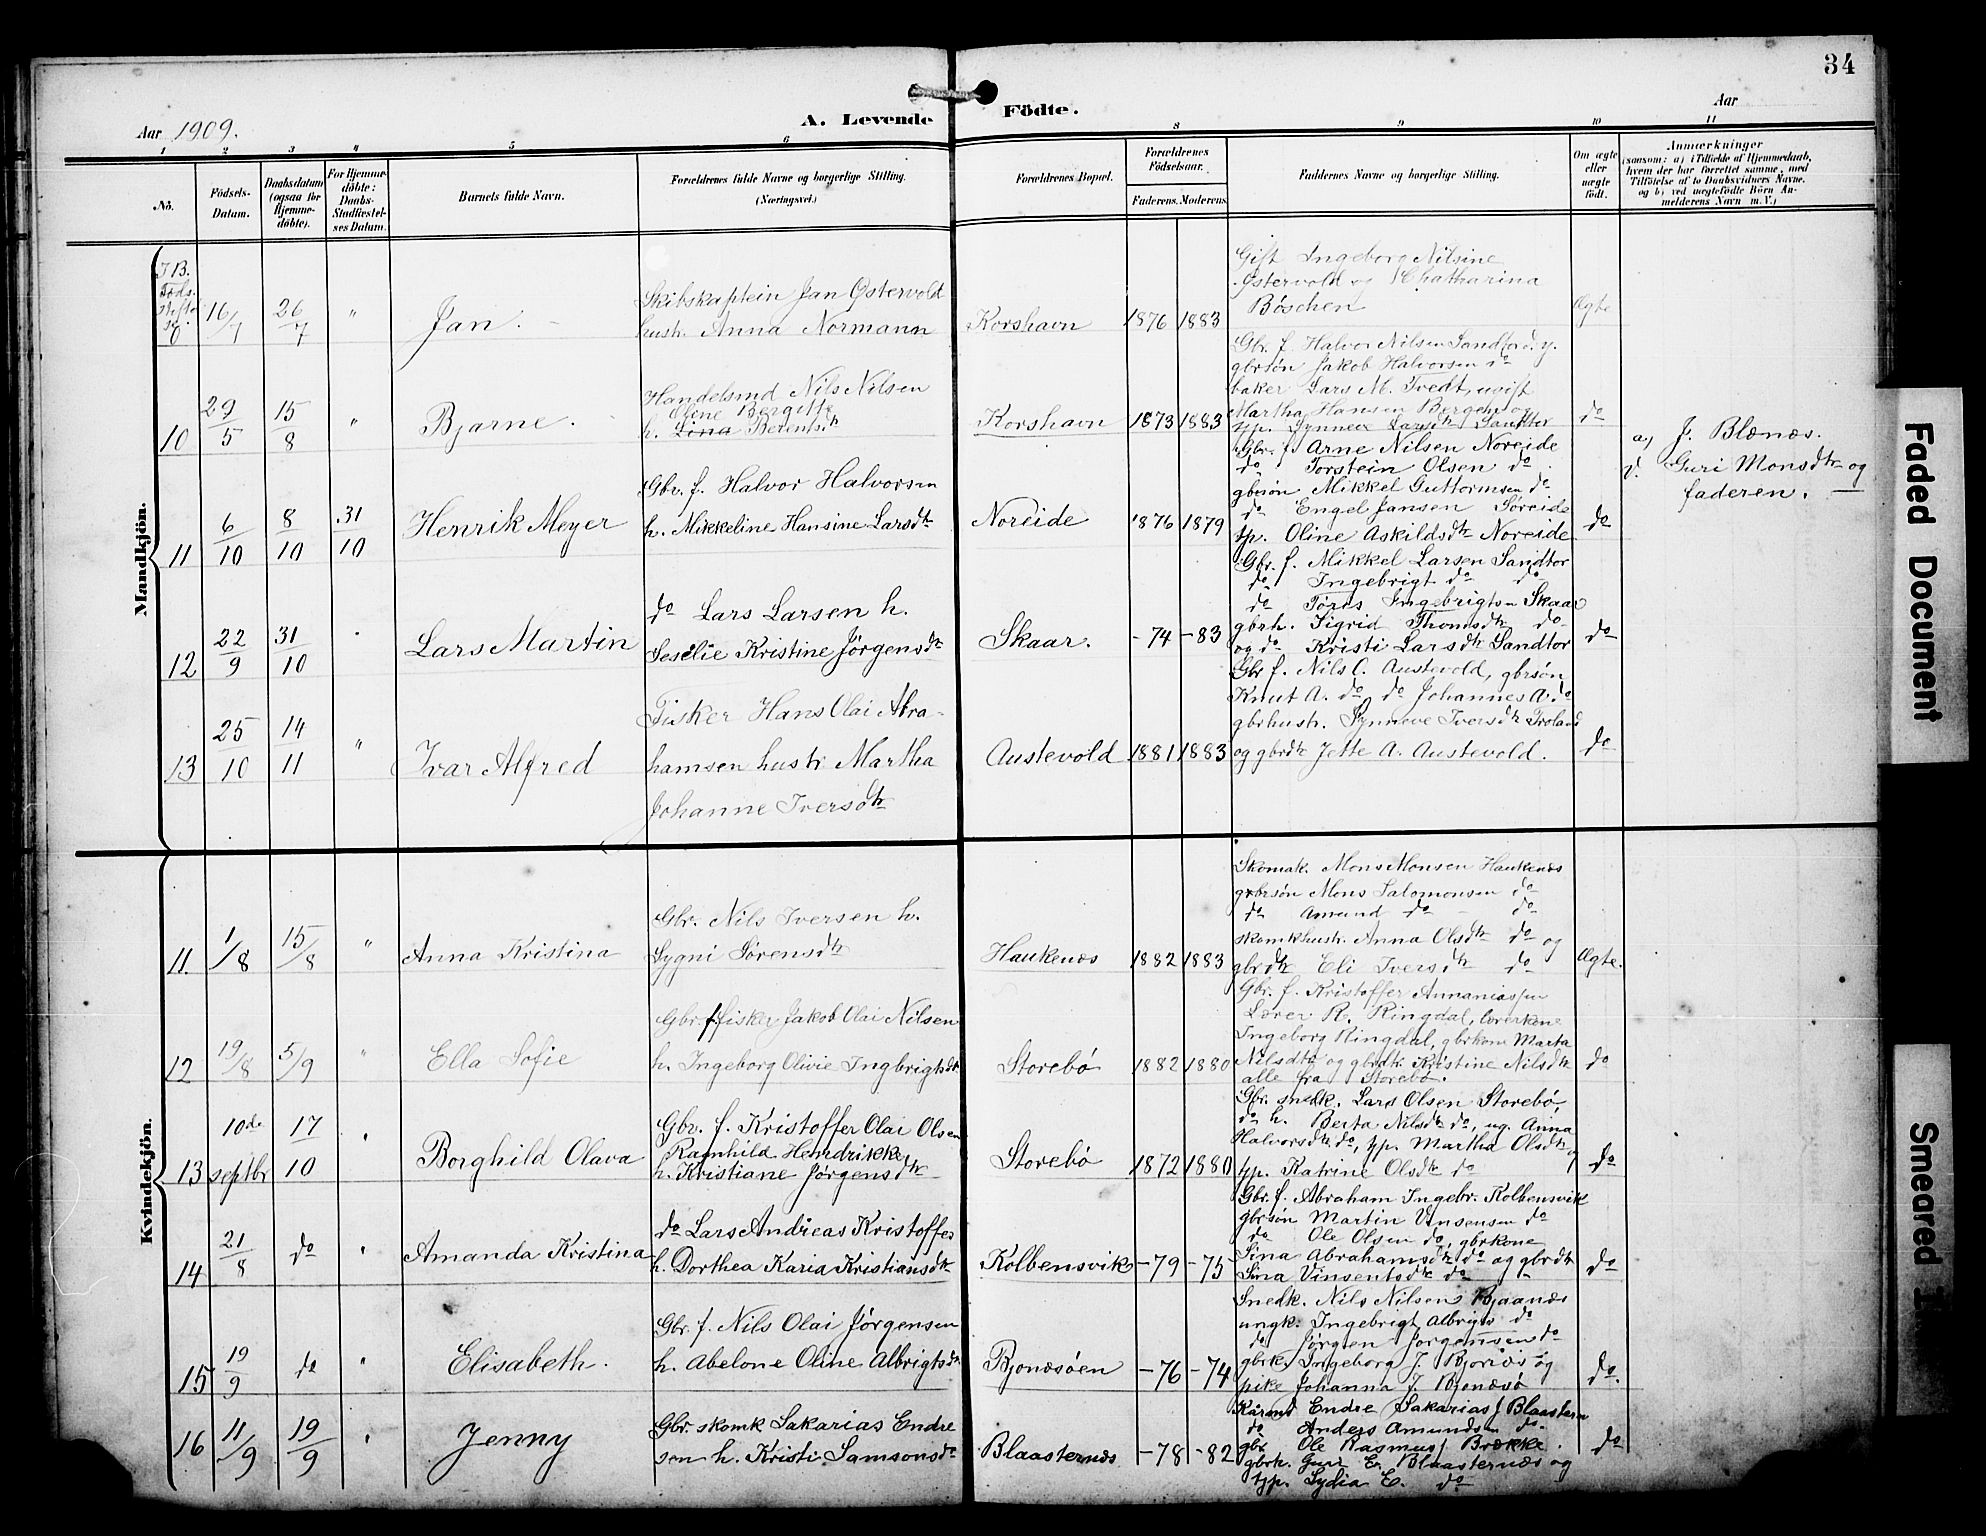 34
Aar 1909.
A. Levende Födte.
Aar
1 2 3 4 5 6 8 9 10 11
No.
Födsels-Datum.
Daabsdatum (ogsaa for Hjemmedöbte).
For Hjemmedöbte: Daabs-Stadfæstelses Datum.
Barnets fulde Navn.
Forældrenes fulde Navne og borgerlige Stilling. (Næringsvei.)
Forældrenes Bopæl.
Forældrenes Födselsaar.
Faderens. Moderens.
Faddernes Navne og borgerlige Stilling.
Om ægte eller uægte födt.
Anmærkninger
(saasom: a) i Tilfælde af Hjemmedaab, hvem der har forrettet samme, med Tilföielse af to Daabsvidners Navne, og b) ved uægtefödte Börn Anmelderens Navn m. V.)
Mandkjön.
16/7 26/7 " Jan.
Skibskaptein Jan Østervold
hustr. Anna Normann
Korshavn 1876 1883
Gift Ingeborg Nilsine
Østervold og Chatharina
Böschen
Ægte
10 29/5 15/8 " Bjarne.
Handelsmd Nils Nilsen
Oline Bergitte
h. Lina Berentsdtr
Korshavn 1873 1883
Gbr. f. Halvor Nilsen Sandtord. y.
gbrsön Jakob Halvorsen do
baker Lars M. Tvedt, ugift
Martha Hansen Bergen og
tjp. Synneve Larsdtr Sandtor
do
11 6/10 8/10 31/10 Henrik Meyer
Gbr. f. Halvor Halvorsen
h. Mikkeline Hansine Larsdtr
Noreide 1876 1879
Gbr. f. Arne Nilsen Noreide
do Torstein Olsen do
gbrsön Mikkel Guttormsen do
do Engel Jansen Søreide
tp. Oline Askildsdtr Noreide
do
a.) J. Blænæs.
Guri Monsdtr og
faderen.
12 22/9 31/10 Lars Martin
do Lars Larsen h.
Seselie Kristine Jørgensdtr
Skaar. -74 -83
Gbr. f. Mikkel Larsen Sandtor
do Ingebrigt do do
do Tøres Ingebrigtsn Skaar
gbrh. Sigrid Thomsdtr do
og do Kristi Larsdtr Sandtor
do
13 25/10 14/11 " Ivar Alfred
Fisker Hans Olai Abra-
hamsen hustr Martha
Johanne Iversdtr
Austevold 1881 1883
Gbr f. Nils O. Austevold, gbrsön
Knut A. do, do Johannes A. do
gbrhustr. Synneve Iversdtr Troland
og gbrdtr Jette A. Austevold.
do
Kvindekjön.
11. 1/8 15/8 " Anna Kristina
Gbr. Nils Iversen h.
Sygni Sörensdtr
Haukenæs 1882 1883
Skomak. Mons Monsen Haukenæs
gbrsön Mons Salomonsen do
do Amund do do
skomkhustr. Anna Olsdtr do og
gbrdtr Eli Iversdtr do
Ægte.
12 19/8 5/9 " Ella Sofie
Gbr. f. fisker Jakob Olai Nilsen
h. Ingeborg Olivie Ingbrigtsdtr.
Storebö 1882 1880
Gbr. f. Kristoffer Annaniassen
Lærer R. Ringdal, lærerkone
Ingeborg Ringdal, gbrkone Marta
Nilsdtr og gbrdtr. Kristine Nilsdtr
alle fra Storebö.
do
13 10de septbr 17/10 Borghild Olava
Gbr. f. Kristoffer Olai Olsen
Ramhild Hendrikke
h. Kristiane Jørgensdtr
Storebö 1872 1880
Gbr. snedk. Lars Olsen Storebö,
do h. Berta Nilsdtr do, ug. Anna
Halvorsdtr do, tjp. Martha Olsdtr og
tjp. Katrine Olsdtr do
do
14 21/8 do Amanda Kristina
do Lars Andreas Kristoffer
h. Dorthea Karia Kristiansdtr
Kolbensvik -79 -75
Gbr. f. Abraham Ingebr. Kolbensvik
gbrsön Martin Vinsensen do
do Ole Olsen do, gbrkone
Sina Abrahamsdtr do og gbrdtr
Sina Vinsentsdtr do
do
15 19/9 do Elisabeth.
Gbr. f. Nils Olai Jørgensen
h. Abelone Oline Albrigtsdtr
Bjonæsöen -76 -74
Snedk. Nils Nilsen Bjaanæs
ungk. Ingebrigt Albrigts do
do Jørgen Jorgensen do
gbrk. Ingeborg J. Bjonæs og
pike Johanna J. Bjonæsö
do.
16 11/9 19/9 Jenny
Gbr. skomk Sakarias Endre
sen h. Kristi Samsonsdr
Blaasternæs -78 -82
Kårmd Endre Sakarias Blaastern
do Anders Amundsen do
gbr Ole Rasmus Brække.
gbrh. Guri E. Blaasternæs og
tjp. Lydia E. do
do
Faded Document
Smeared